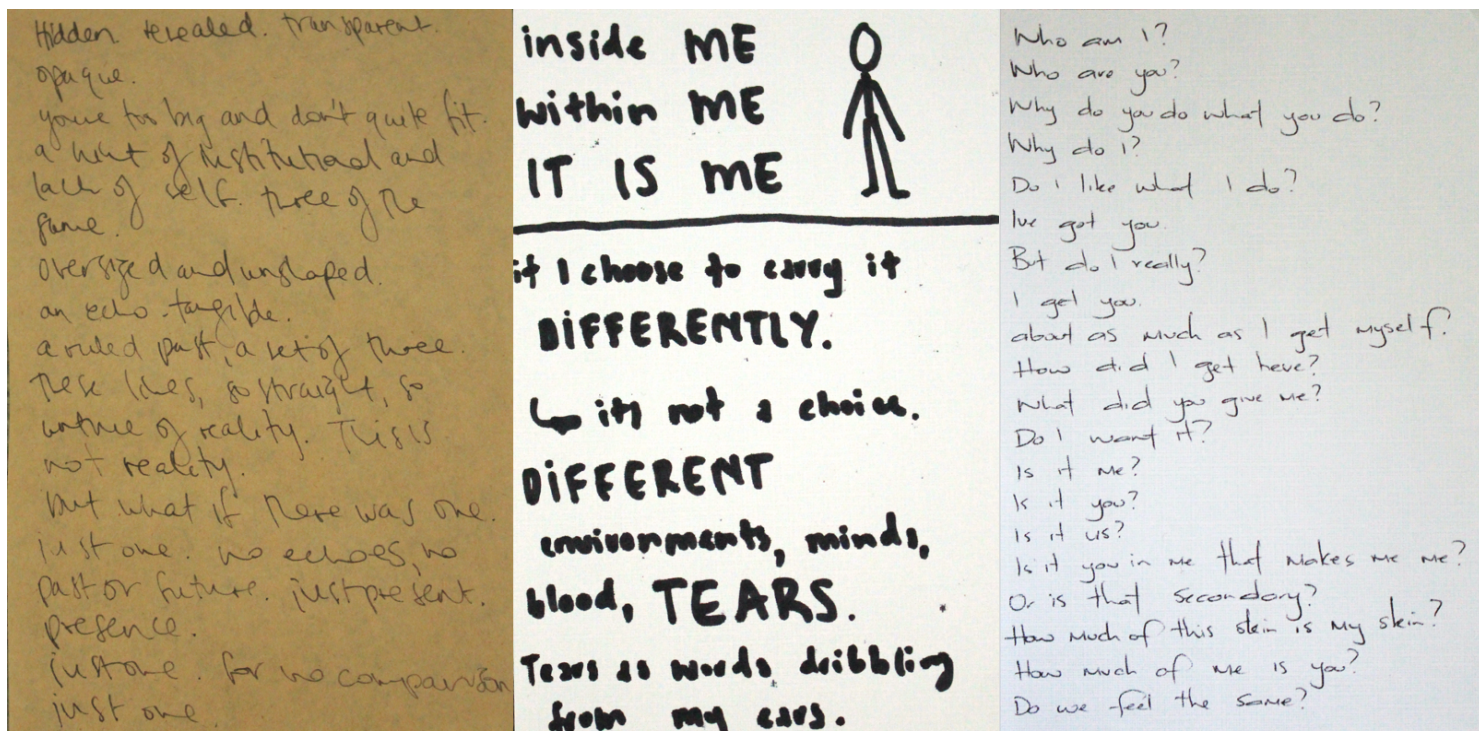 Hidden. revealed. transparent.
opaque.
you're too big and don't quite fit.
a hint of institutional and
lack of self. three of the
same.
oversized and unshaped.
an echo. tangible.
a ruled past, a set of three.
these lines, so straight, so
untrue of reality. This is
not reality.
but what if there was one.
just one. no echoes, no
past or future. just present.
presence.
just one. for no comparison
just one.
inside ME
within ME
IT IS ME
if I choose to carry it
DIFFERENTLY.
↳ it's not a choice.
DIFFERENT
environments, minds,
blood, TEARS.
Tears as words dribbling
from my ears.
Who am I?
Who are you?
Why do you do what you do?
Why do I?
Do I like what I do?
I've got you.
But do I really?
I get you.
about as much as I get myself?
How did I get here?
What did you give me?
Do I want it?
Is it me?
Is it you?
Is it us?
Is it you in me that makes me me?
Or is that secondary?
How much of this skin is my skin?
How much of me is you?
Do we feel the same?